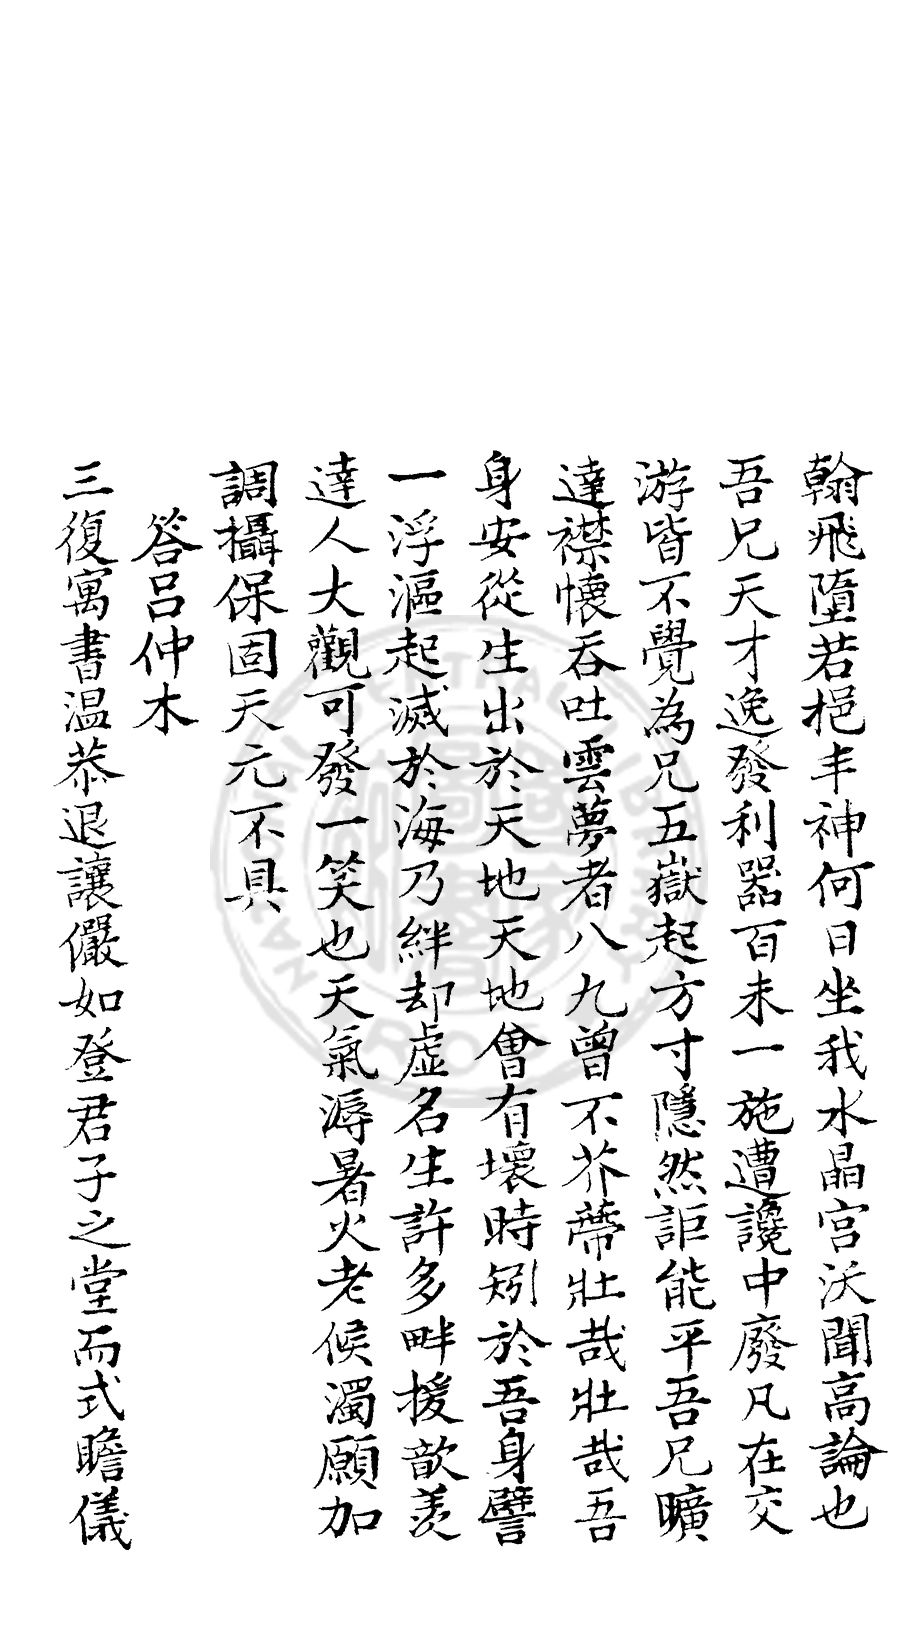 翰飛墮若挹丰神何日坐我水晶宮沃聞高論也
吾兄天才逸發利器百未一施遭讒中廢凡在交
游皆不覺為兄五嶽起方寸隱然詎能平吾兄曠
達襟懷吞吐雲夢者八九曾不芥蔕壯哉壯哉吾
身安從生出於天地天地會有壞時矧於吾身譬
一浮漚起滅於海乃絆却虛名生許多畔援歆羨
達人大觀可發一笑也天氣溽暑火老候濁願加
調攝保固天元不具
答呂仲木
三復寓書温恭退讓儼如登君子之堂而式瞻儀